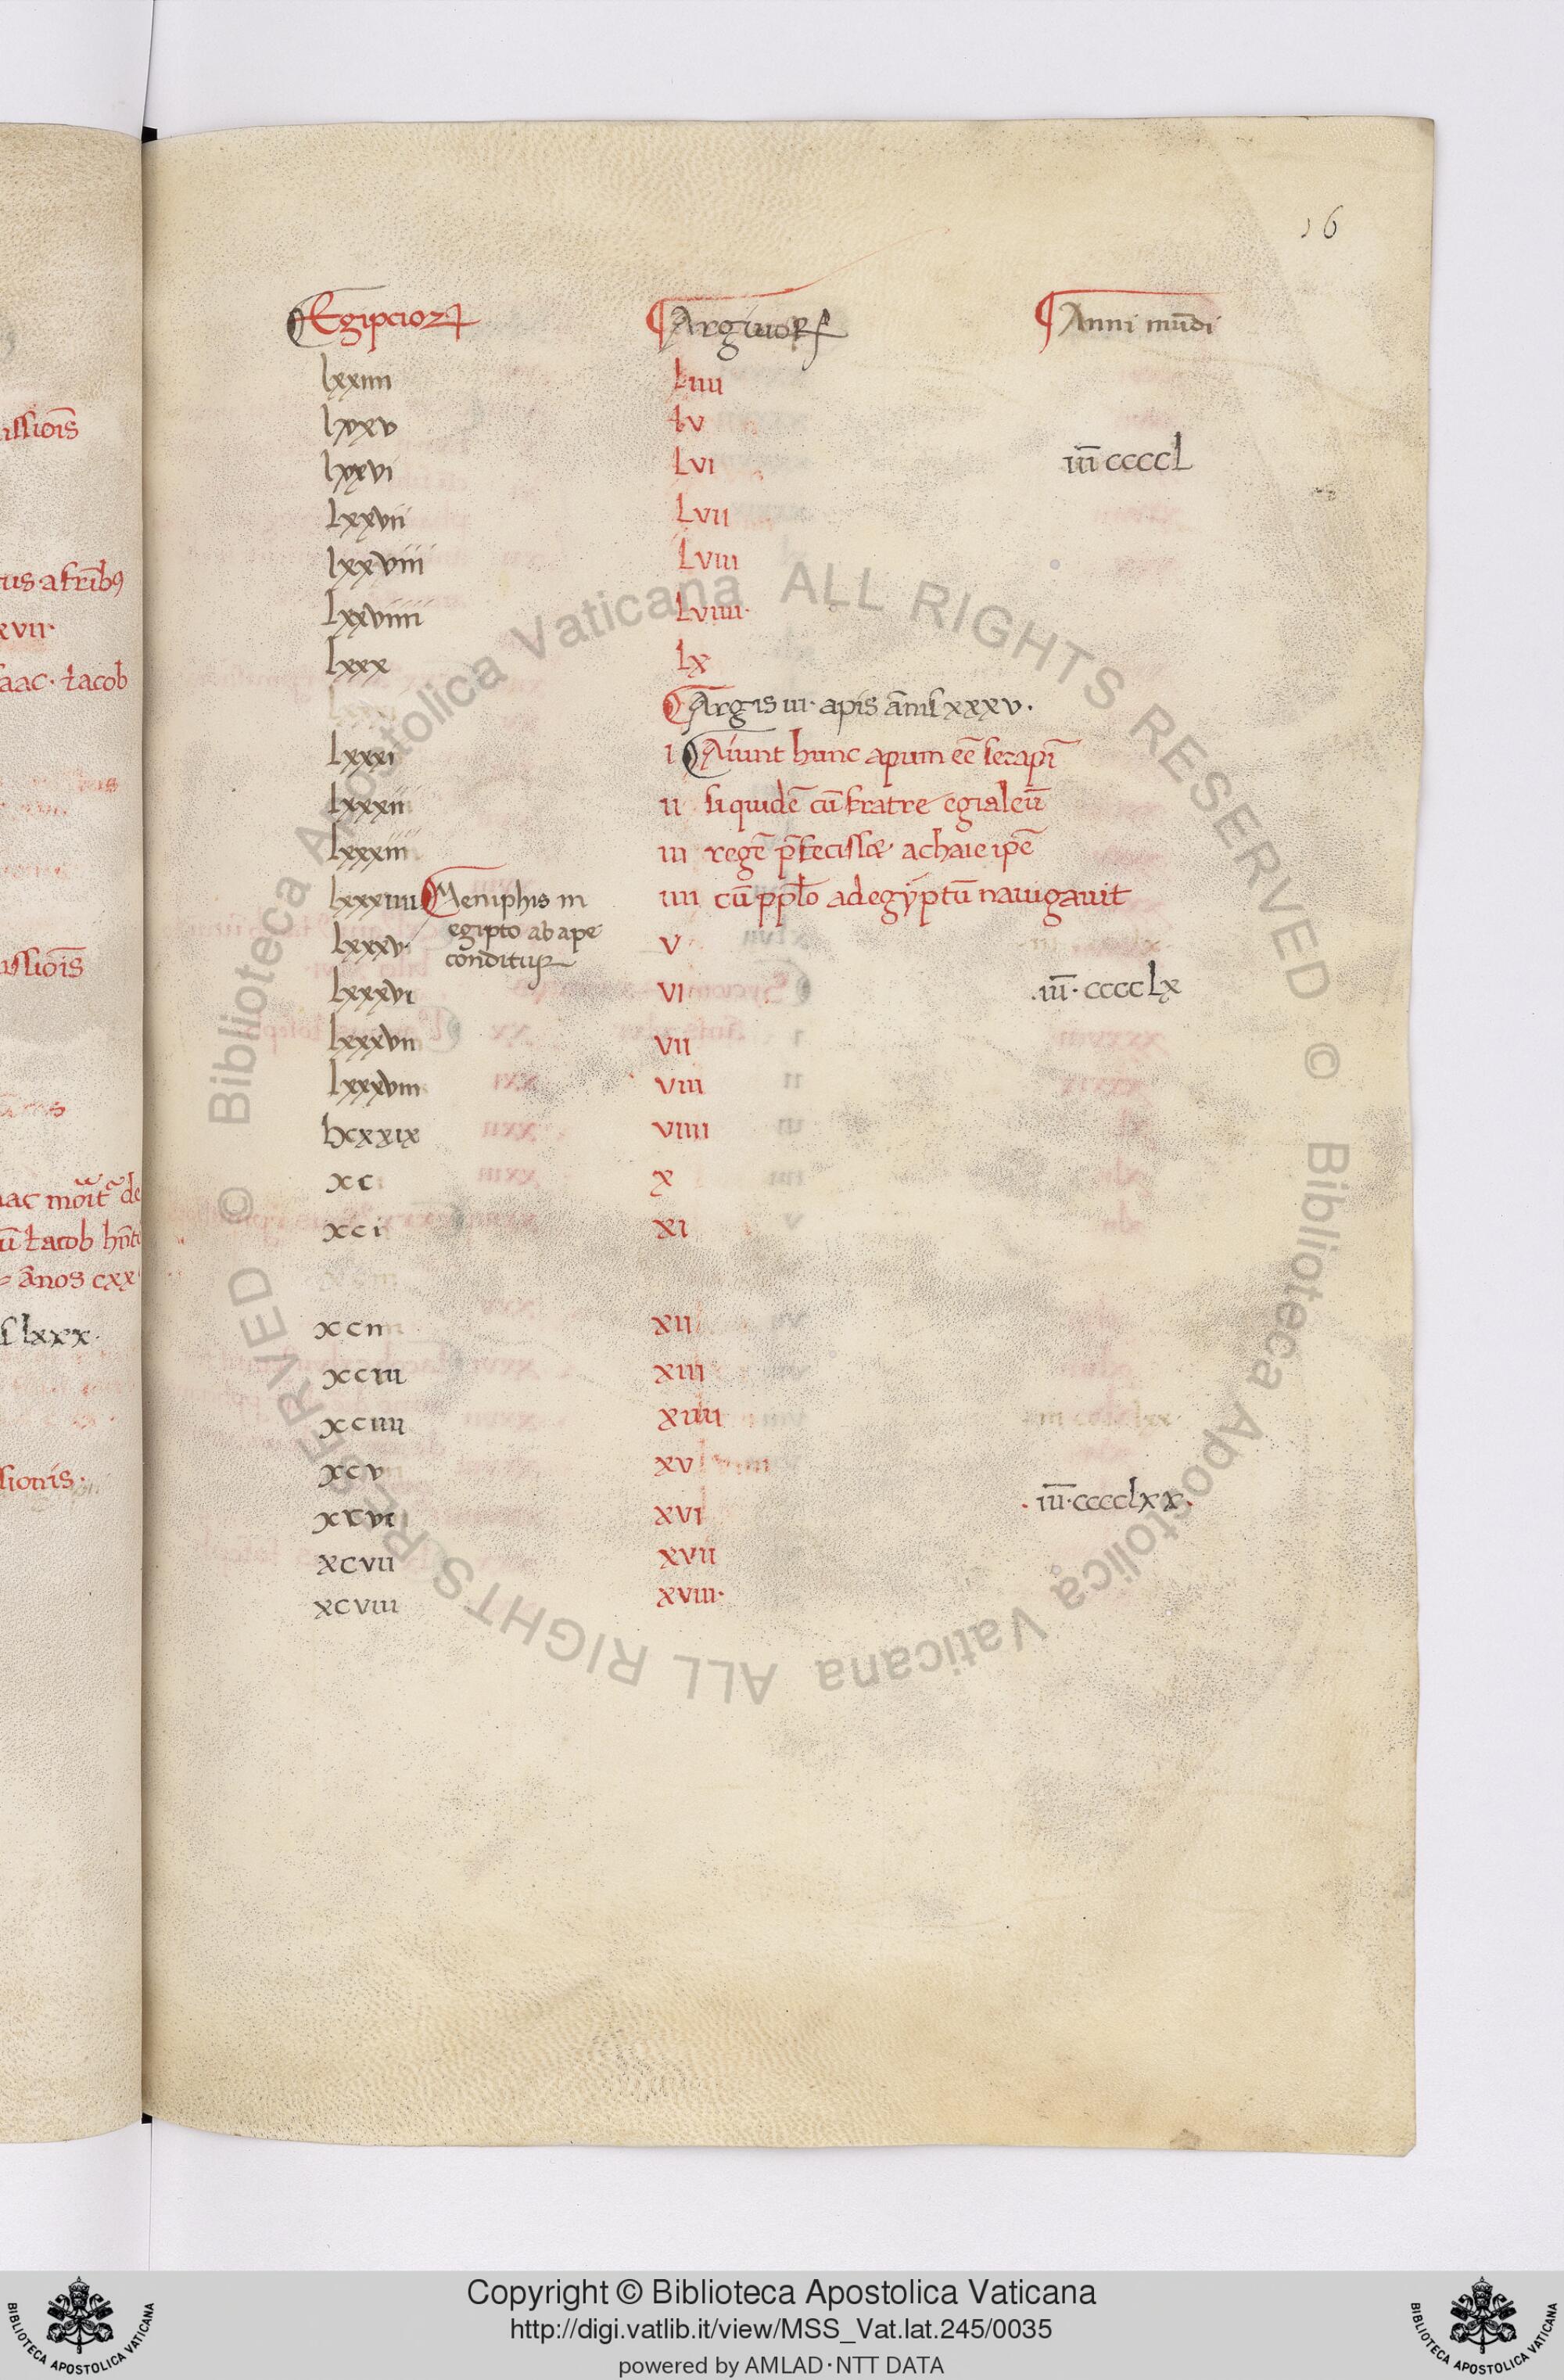 16
Egipcioꝝ Argiuoꝝ Anni mūdi
lxxiiii Liiii
lxxv Lv
lxxvi Lvi iii̅ ccccl
Lxxvii Lvii
lxxviii Lviii
Lxxviiii Lviiii·
Lxxx Lx
Argis iii· apis ānis xxxv·
Lxxxi i Aiunt hunc apum eē serapī
Lxxxii ii siquidē cū fratre egialeū
Lxxxiii iii regē p̄fecisset achaie ipē
lxxxiiii Memphis in iiii cū ppl̄o ad egyptū nauigauit
egipto ab ape
Lxxxv· v
conditur
Lxxxvi vi ·iii̅· cccclx
Lxxxvii vii
Lxxxviii viii
lxxxix viiii
xc x
xci xi
xcii xii
xciii xiii
xciiii xiiii
xcv xv
xcvi xvi ·iii̅·cccclxx·
xcvii xvii
xcviii xviii·
issiois̄
us·a frībꝯ
xvii·
aac· Iacob
issiois̄
ū Iacob
ānos cxx
lxxx·
sionis·
© Biblioteca Apostolica Vaticana ALL RIGHTS RESERVED © Biblioteca Apostolica Vaticana ALL RIGHTS RESERVED
Copyright © Biblioteca Apostolica Vaticana
http://digi.vatlib.it/view/MSS_Vat.lat.245/0035
powered by AMLAD·NTT DATA
BIBLIOTECA APOSTOLICA VATICANA
BIBLIOTECA APOSTOLICA VATICANA